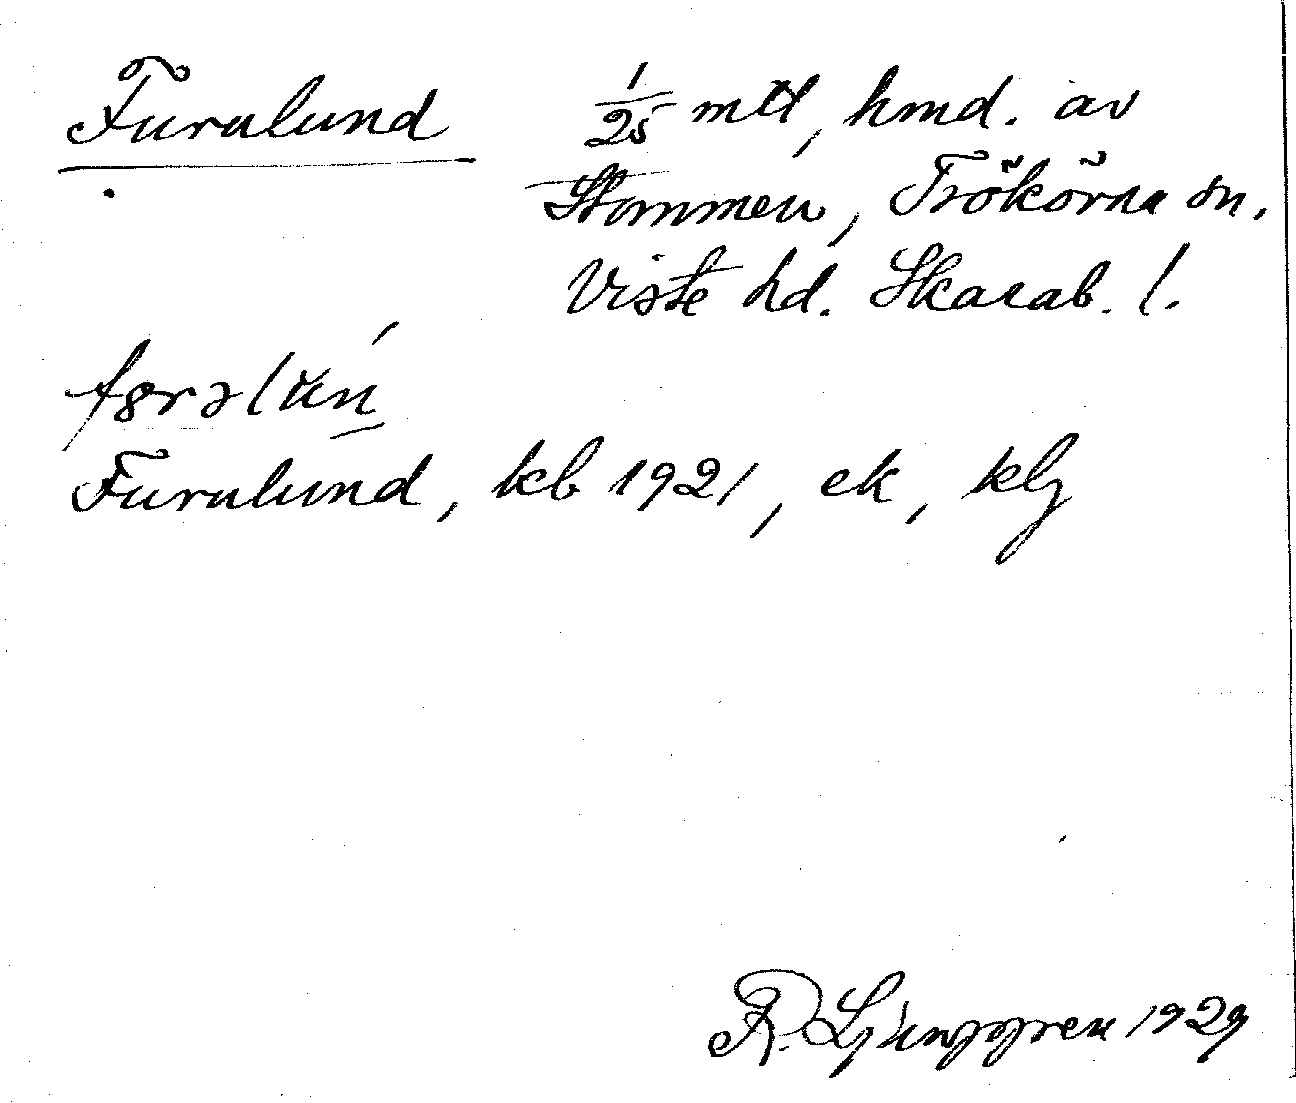 Furulund 1/25 mtl, hmd. av
Stommen, Trökörna sn,
Viste hd. Skarab. l.
Furulund, kb 1921, ek, klj
R. Ljunggren 1929